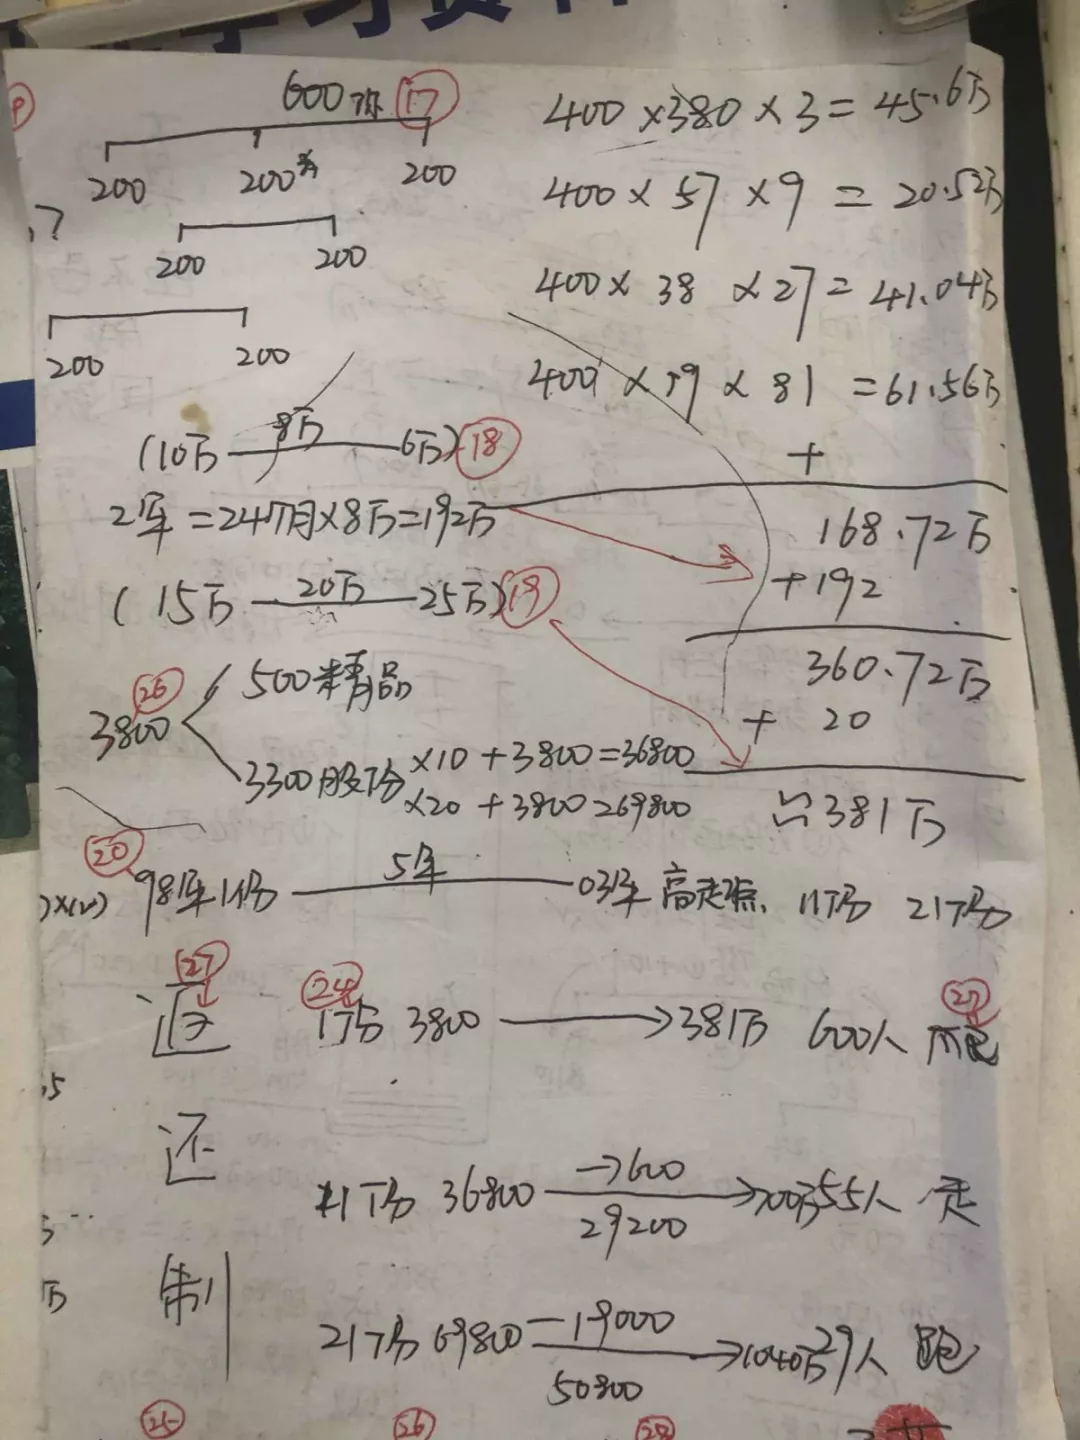 学习资料
600份 17
200 200 200
200 200
200 200
400×380×3=45.6万
400×57×9=20.52万
400×38×27=41.04万
400×19×81=61.56万
+
168.72万
+192
360.72万
+ 20
≌381万
(10万 8万 6万) 18
2年=24个月×8万=192万
(15万 20万 25万) 19
26
3800 500精品
3300股份 ×10+3800=36800
×20+3800=69800
20
98年1份 5年 03年 11份 21份
27 24 27
退 1份 3800 → 381万 600人
还
11份 36800 →7600 29200 55人 走
制
21份 69800 -19000 50800 → 1040万 29人 跑
25 26 28